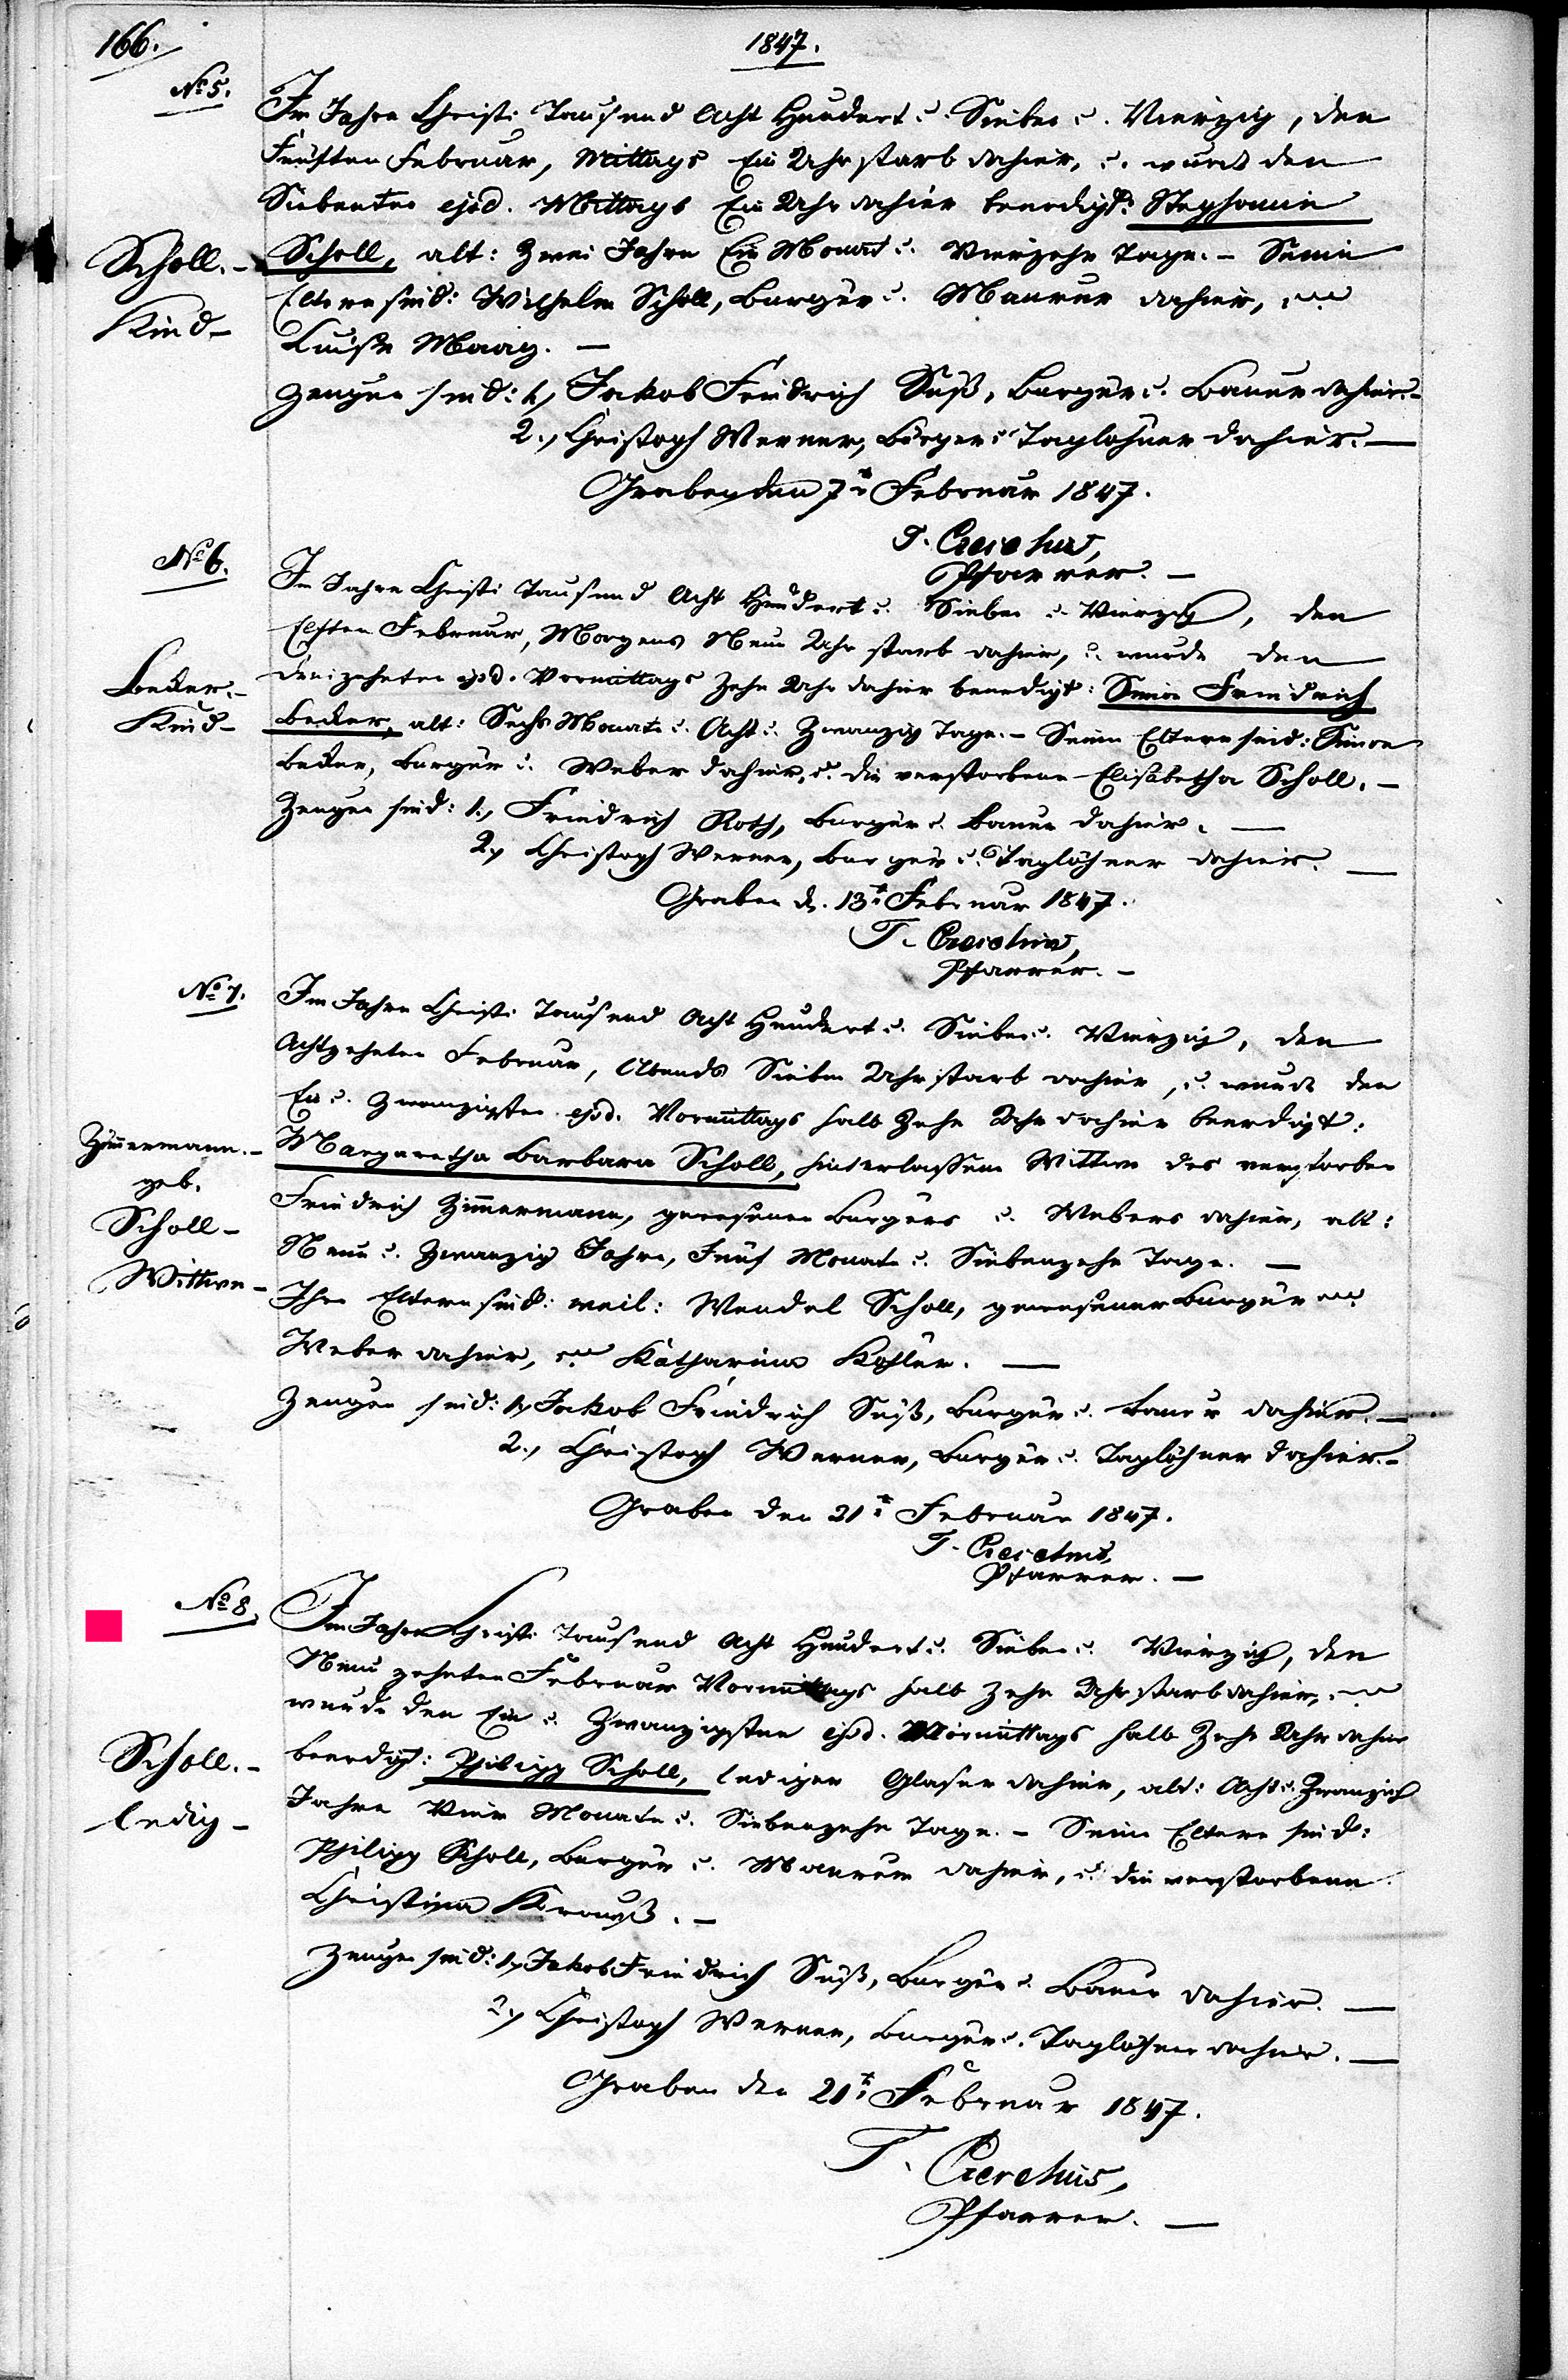 166.
1847.
No 5.
Im Jahre Christi Tausend Acht Hundert u. Sieben u. Vierzig, den
Fünften Februar, Mittags Ein Uhr starb dahier, u. wurde den
Siebenten ejsd. Mittags Ein Uhr dahier beerdigt: Stephanie
Scholl. -
Kind -
Scholl, alt: Zwei Jahre Ein Monat u. Vierzehn Tage. - Seine
Eltern sind: Wilhelm Scholl, Burger u. Maurer dahier, und
Luise Maag. -
Zeugen sind: 1., Jakob Friedrich Süß, Burger u. Bauer dahier. -
2., Christoph Werner, Burger u. Taglöhner dahier. -
Graben den 7t Februar 1847.
Pfarrer. -
No 6.
Im Jahre Christi Tausend Acht Hundert u. Sieben u. Vierzig, den
Elften Februar, Morgens Neun Uhr starb dahier, u. wurde den
Dreizehnten ejsd. Vormittags Zehn Uhr dahier beerdigt: Simon Friedrich
Becker. -
Kind -
Becker, alt: Sechs Monate u. Acht u. Zwanzig Tage. - Seine Eltern sind: Simon
Becker, Burger u. Weber dahier, u. die verstorbene Elisabetha Scholl. -
Zeugen sind: 1., Friedrich Roth, Burger u. Bauer dahier. -
2., Christoph Werner, Burger u. Taglöhner dahier. -
Graben d. 13t Februar 1847.
Pfarrer. -
No 7.
Im Jahre Christi Tausend Acht Hundert u. Sieben u. Vierzig, den
Achtzehnten Februar, Abends Sieben Uhr starb dahier, u. wurde den
Ein u. Zwanzigsten ejsd. Vormittags halb Zehn Uhr dahier beerdigt:
Zimmermann. -
geb.
Scholl -
Wittwe -
Margaretha Barbara Scholl, hinterlassene Wittwe des verstorben
Friedrich Zimmermann, gewesenen Burgers u. Webers dahier, alt:
Neun u. Zwanzig Jahre, Fünf Monate u. Siebenzehn Tage. -
Ihre Eltern sind: weil: Wendel Scholl, gewesener Burger und
Weber dahier, und Katharina Kohler. -
Zeugen sind: 1., Jakob Friedrich Süß, Burger u. Bauer dahier. -
2., Christoph Werner, Burger u. Taglöhner dahier. -
Graben den 21t Februar 1847.
Pfarrer. -
No 8.
Im Jahre Christi Tausend Acht Hundert u. Sieben u. Vierzig, den
Neunzehnten Februar Vormittags halb Zehn Uhr starb dahier, und
wurde den Ein u. Zwanzigsten ejsd. Vormittags halb Zehn Uhr dahier
Scholl. -
ledig -
beerdigt: Philipp Scholl, lediger Glaser dahier, alt: Acht u. Zwanzig
Jahre Vier Monate u. Siebenzehn Tage. - Seine Eltern sind:
Philipp Scholl, Burger u. Maurer dahier, u. die verstorbene
Christina Krauß. -
Zeugen sind: 1., Jakob Friedrich Süß, Burger u. Bauer dahier. -
2., Christoph Werner, Burger u. Taglöhner dahier. -
Graben den 21t Februar 1847.
Pfarrer. -